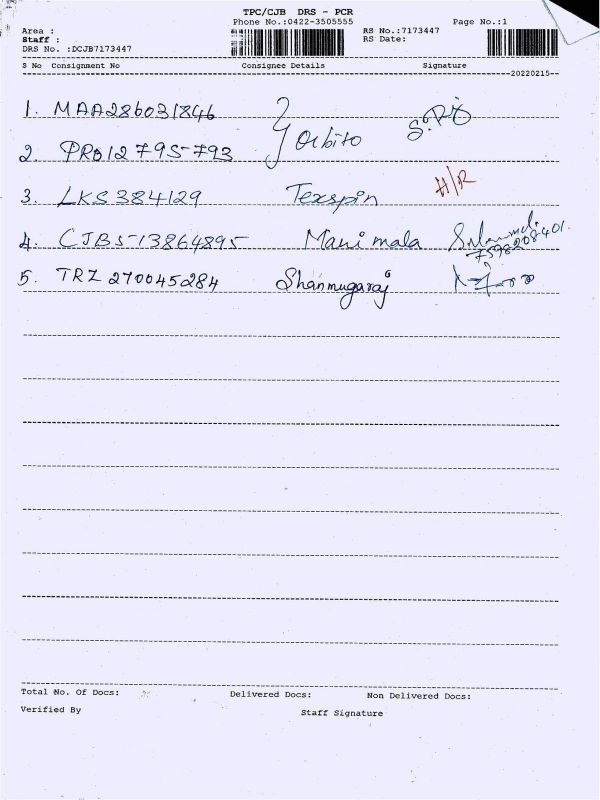 TPC/CJB DRS - PCR
Phone No.:0422-3505555 Page No.:1
Area : RS No.:7173447
Staff : RS Date:
DRS No. :DCJB7173447
S No Consignment No Consignee Details Signature
20220215
1. MAA286031846
Orbito
2. PRO12795793
3. LKS384129 Texspin H/R
4. CJB513864895 Manimala
7598208401
5. TRZ270045284 Shanmugaraj
Total No. Of Docs: Delivered Docs: Non Delivered Docs:
Verified By Staff Signature